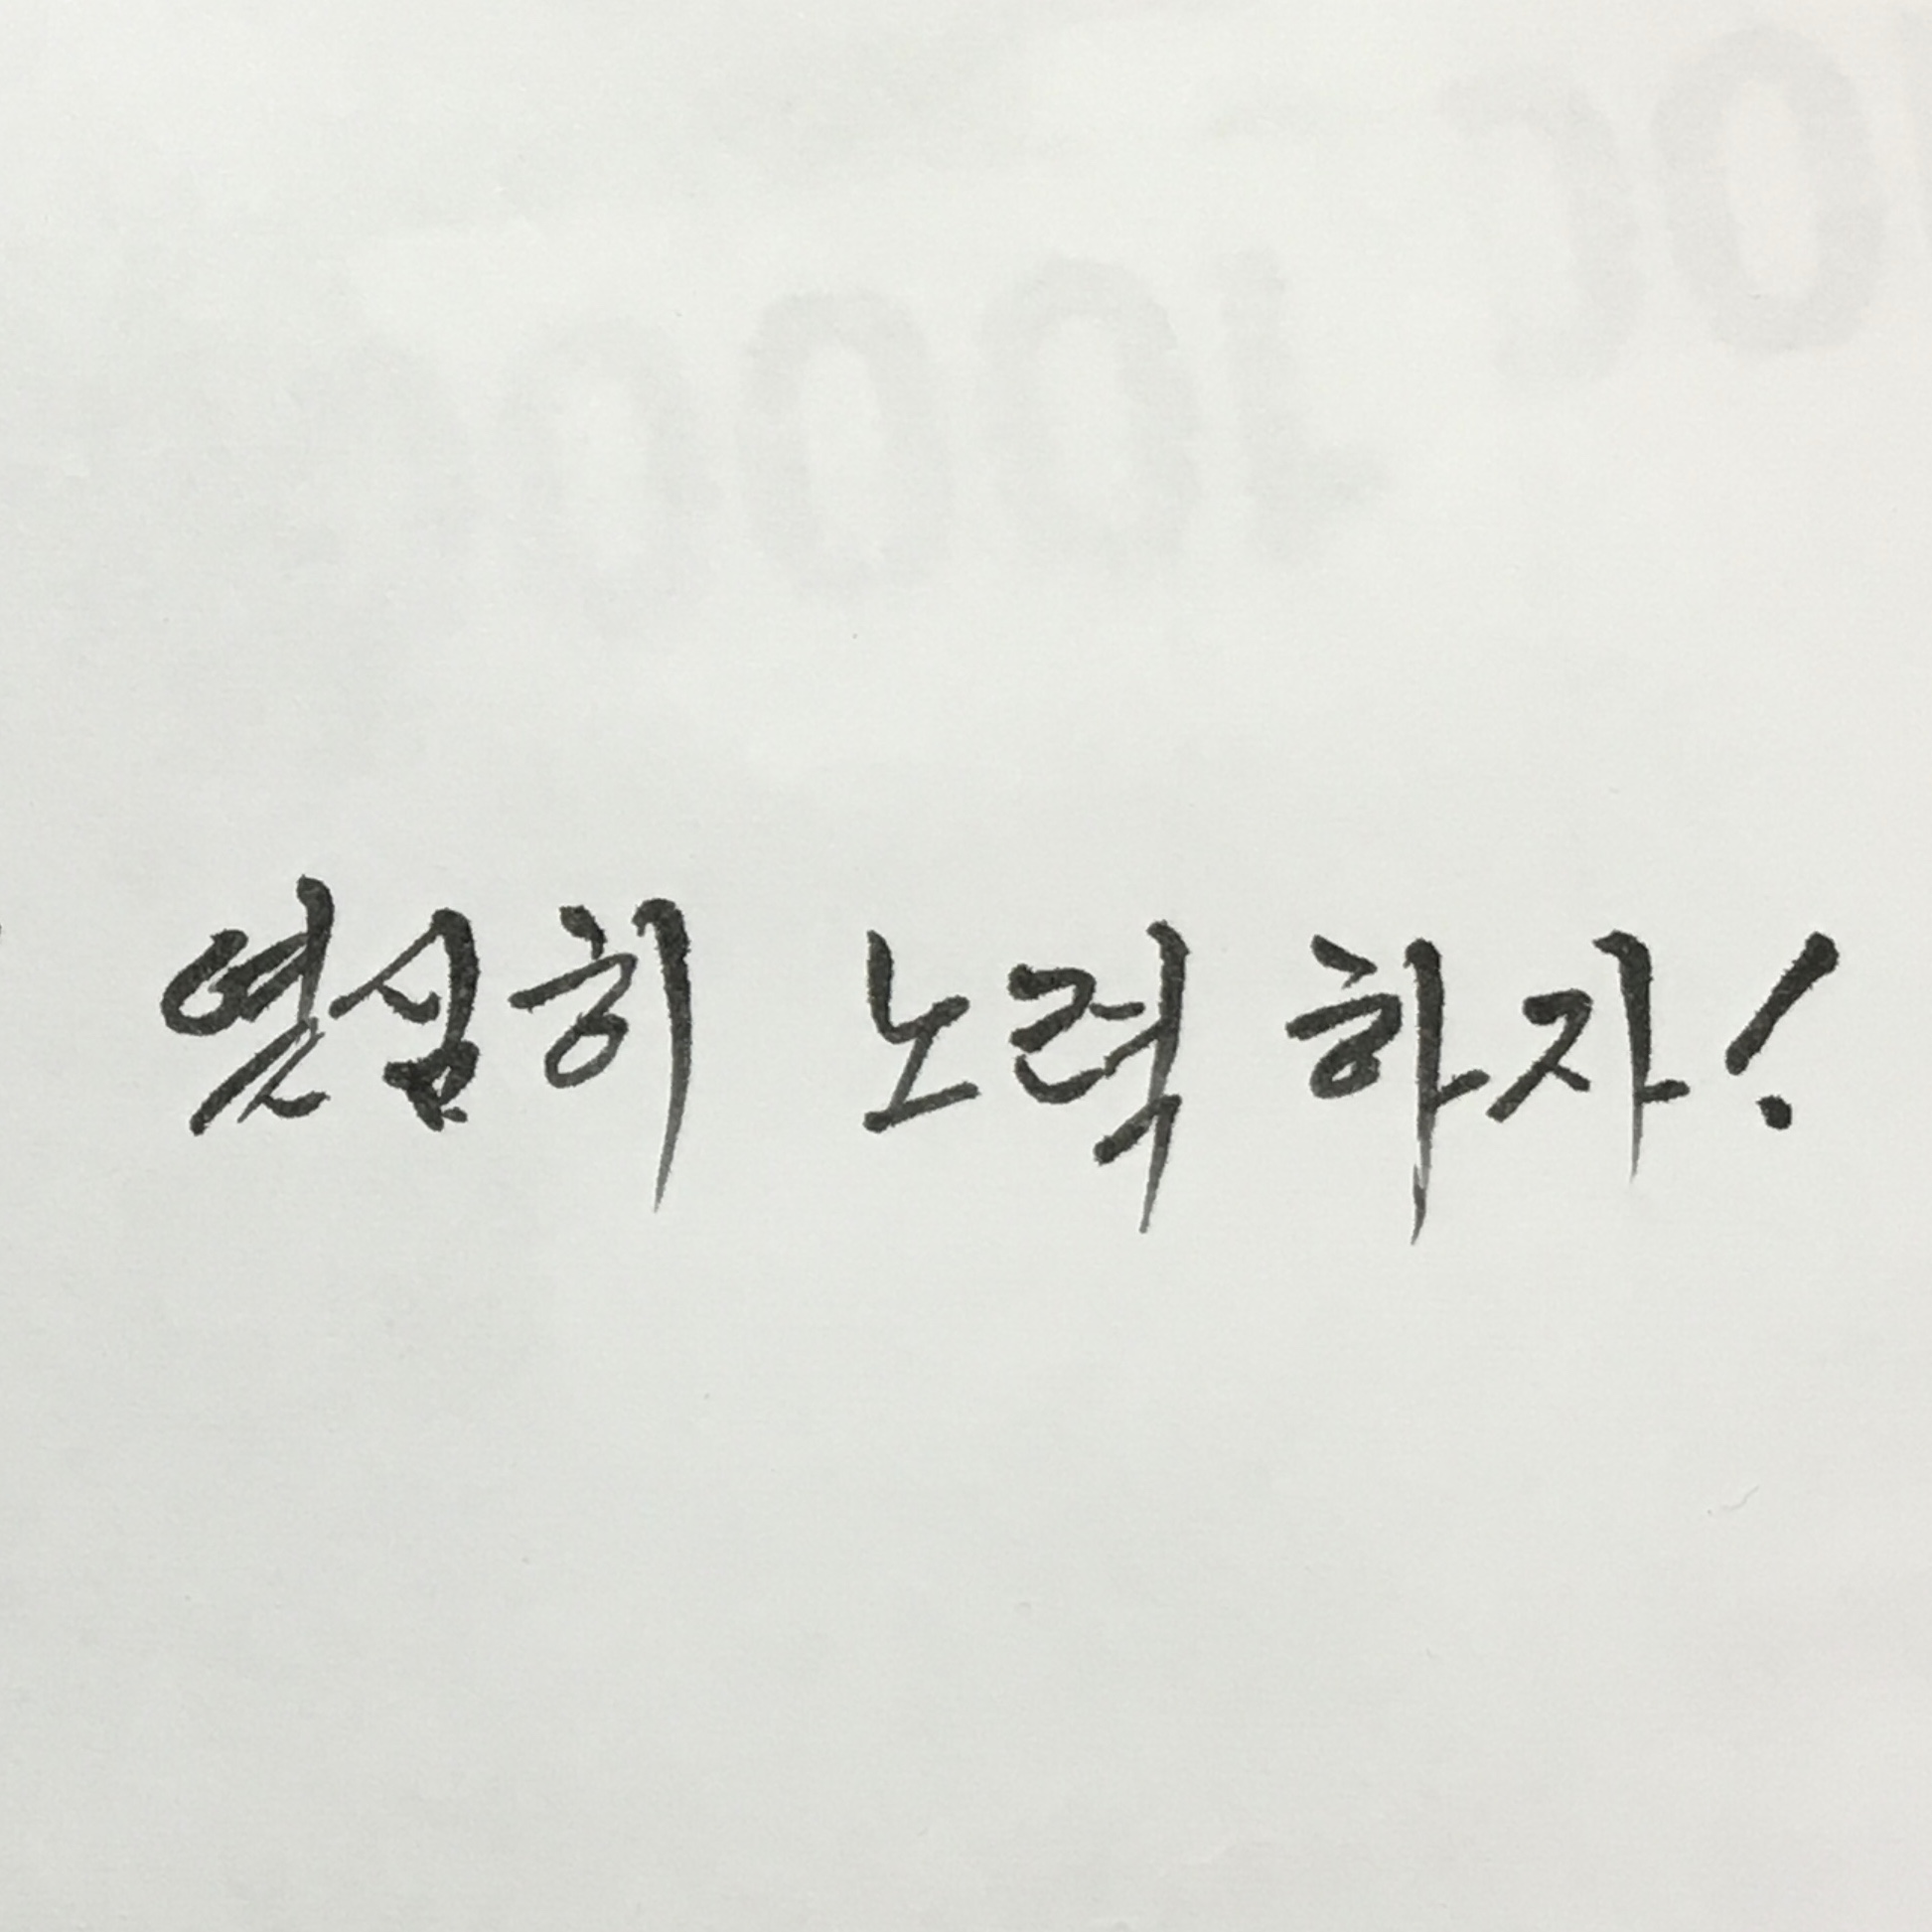 열심히 노력 하자!